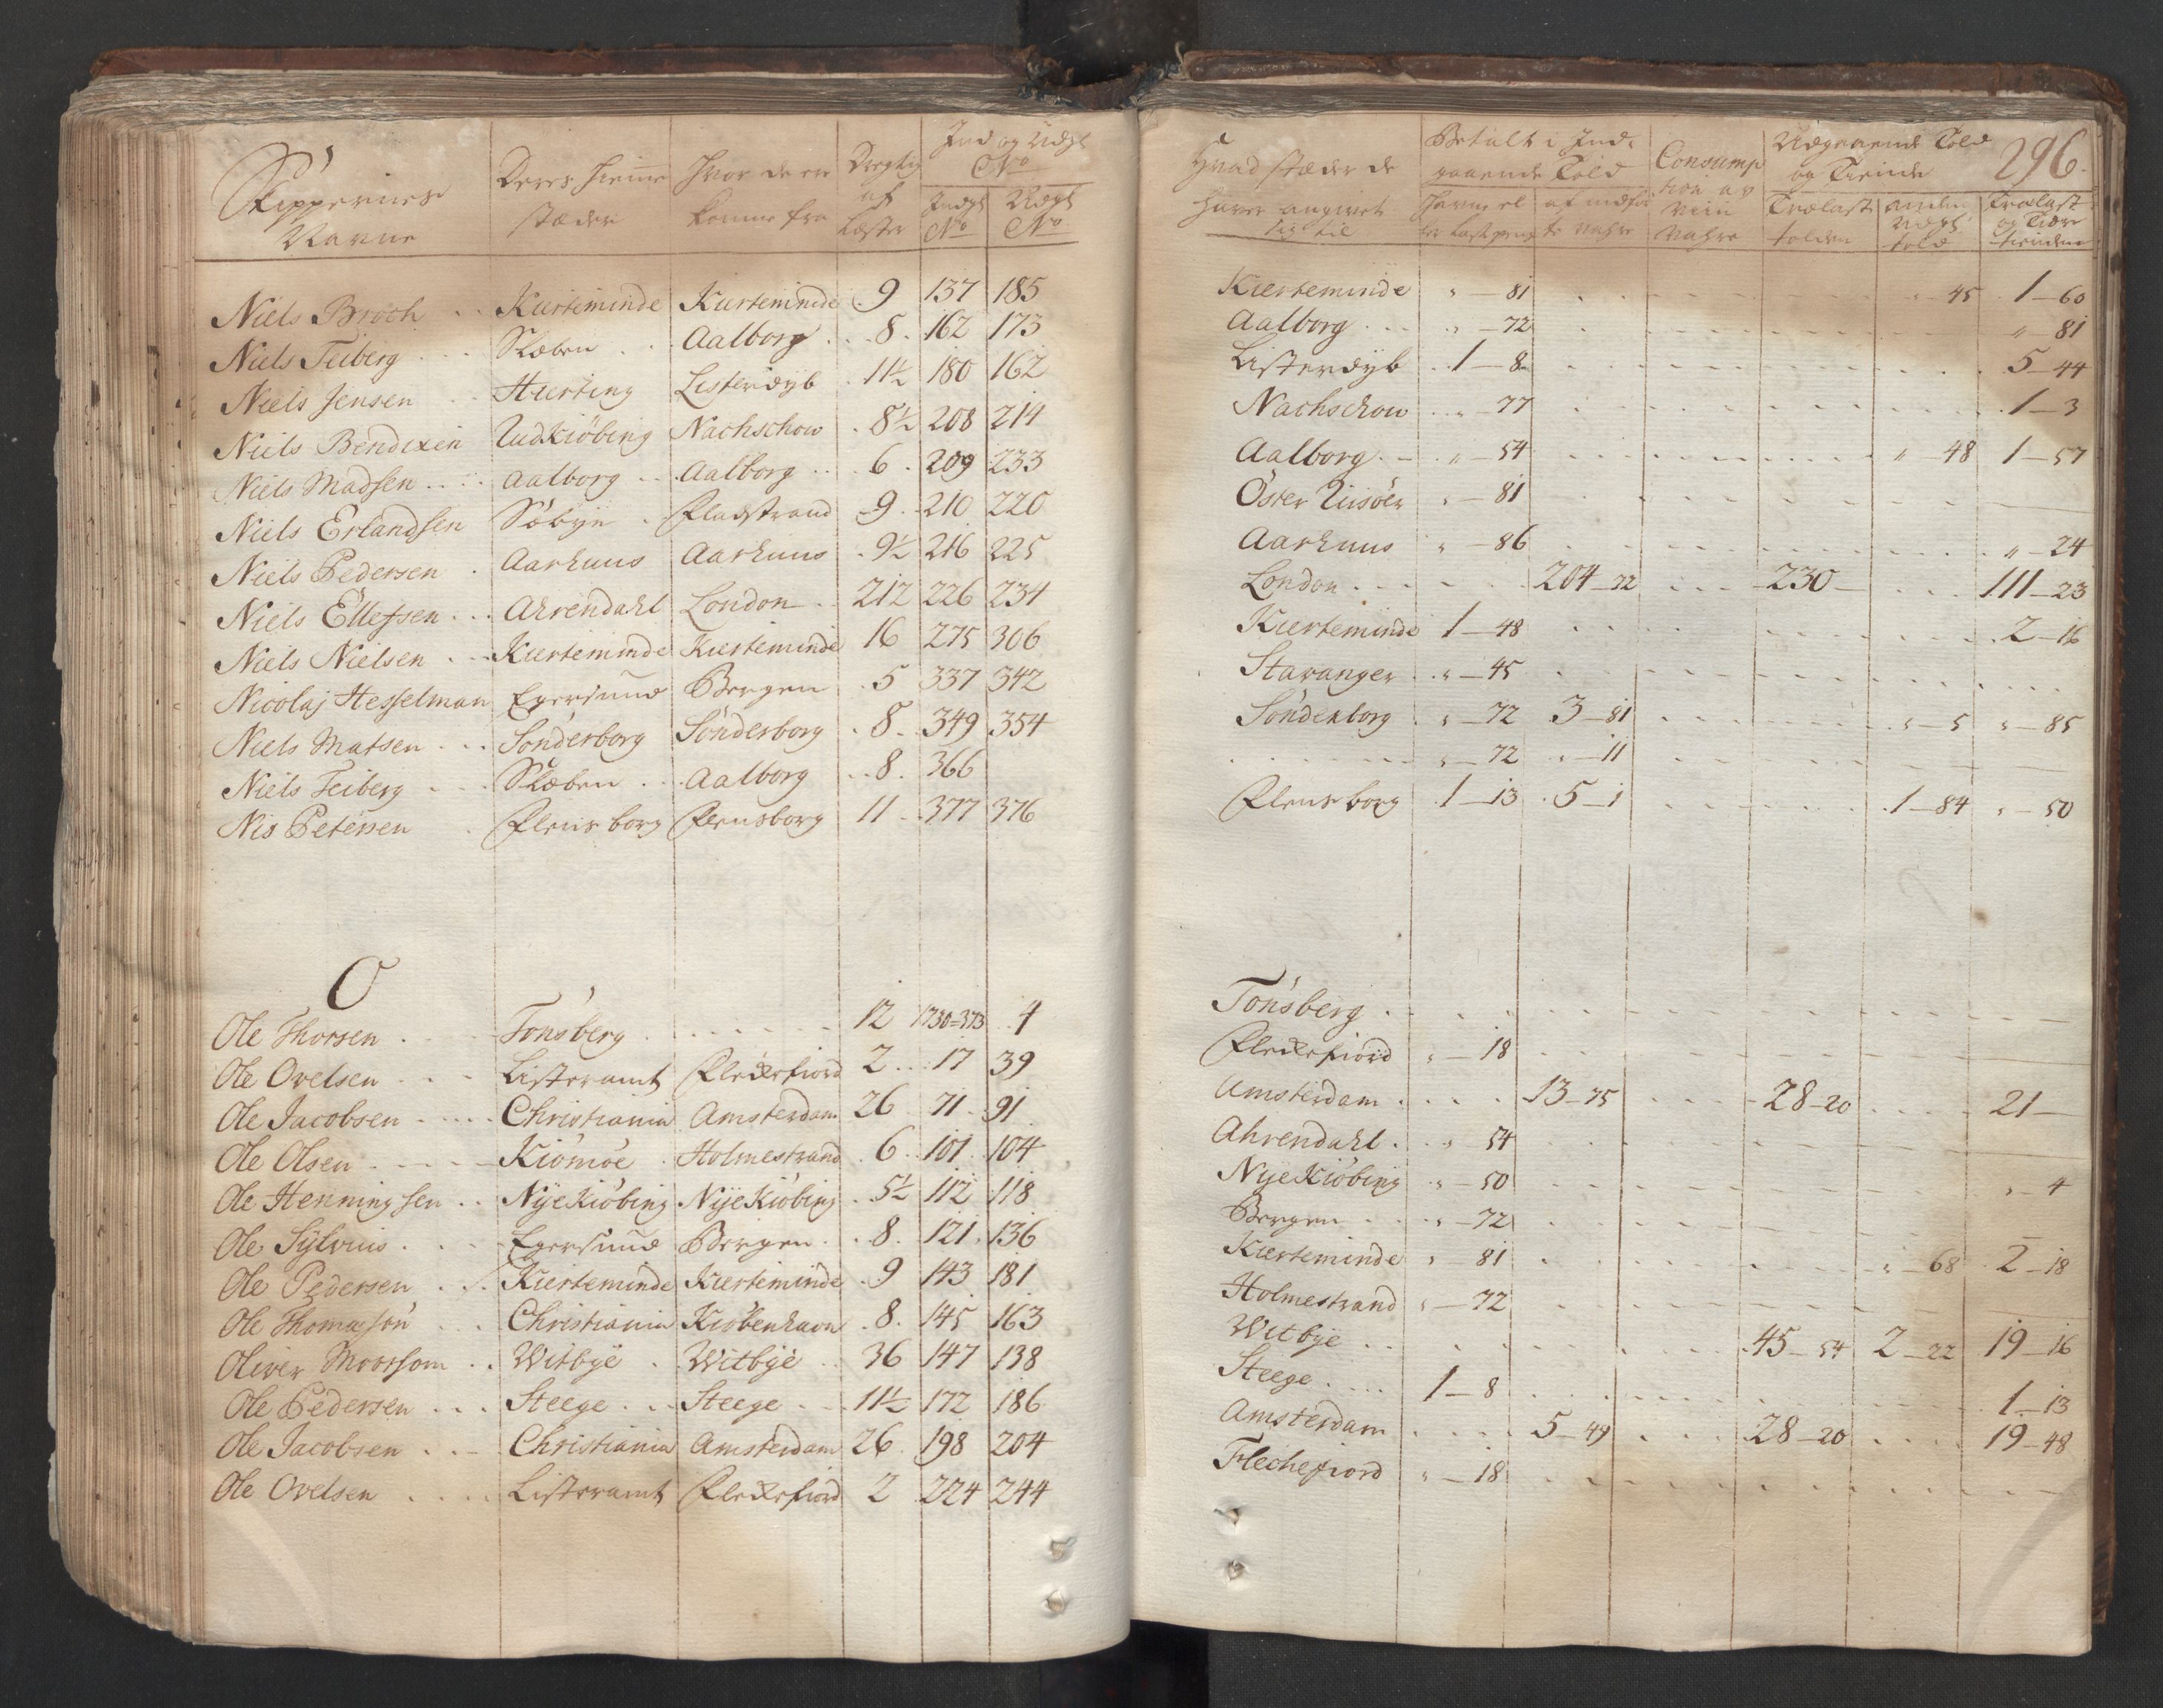 Skippernes Navne | Deres hiemme stæder | Hvor de ere komne fra | Drægtig af Læster | Ind og Udgl No | Indgl No | Udgl No
Niels Broch | Kierteminde | Kierteminde | 9 | 137 | 185
Niels Feiberg | Skeben | Aalborg | 8 | 162 | 173
Niels Jensen | Hierting | Listerdyb | 11½ | 180 | 162
Niels Bendixen | Rudkiöbing | Nachschow | 8½ | 208 | 214
Niels Madsen | Aalborg | Aalborg | 6 | 209 | 233
Niels Erlandsen | Söbÿe | Fladstrand | 9 | 210 | 220
Niels Pedersen | Aarhuus | Aarhuus | 9½ | 216 | 225
Niels Ellefsen | Ahrendahl | London | 212 | 226 | 234
Niels Nielsen | Kierteminde | Kierteminde | 16 | 275 | 306
Nicolaj Hesselman | Egersund | Bergen | 5 | 337 | 342
Niels Matsen | Sönderborg | Sönderborg | 8 | 349 | 354
Niels Feiberg | Skæben | Aalborg | 8 | 366
Nis Petersen | Flensborg | Flensborg | 11 | 377 | 376
O
Ole Thorsen | Tönsberg | 12 | 1730=373 | 4
Ole Ovelsen | Listeramt | Fleckefiord | 2 | 17 | 39
Ole Jacobsen | Christiania | Amsterdam | 26 | 71 | 91
Ole Olsen | Kiömöe | Holmestrand | 6 | 101 | 104
Ole Henningsen | Nÿekiöbing | Nÿekiöbing | 5½ | 112 | 118
Ole Sÿlvius | Egersund | Bergen | 8 | 121 | 136
Ole Pedersen | Kierteminde | Kierteminde | 9 | 143 | 181
Ole Thomasön | Christiania | Kiöbenhavn | 8 | 145 | 163
Oliver Moorsom | Witbÿe | Witbÿe | 36 | 147 | 138
Ole Pedersen | Steege | Steege | 11½ | 172 | 186
Ole Jacobsen | Christiania | Amsterdam | 26 | 198 | 204
Ole Ovelsen | Listeramt | Fleckefiord | 2 | 224 | 244
296.
Hvad stæder de haver angivet sig til | Betalt i Indgaaende Told | af indförte Vahre | Consumption av Vahre | Udgaaende Told og Tiende | Trælast tolden | anden Udgl told | Trælast og Tiære tienden
Kierteminde | " — 81 | " — 45 | 1 — 60
Aalborg | " — 72 | " — 81
Listerdyb | 1 — 8 | 5 — 44
Nachschow | " — 77 | 1 — 3
Aalborg | " — 54 | " — 48 | 1 — 57
Öster Riisöer | " — 81
Aarhuus | " — 86 | " — 24
London | 204 — 72 | 230 — | 111 — 23
Kierteminde | 1 — 48 | 2 — 16
Stavanger | " — 45
Sönderborg | " — 72 | 3 — 81 | " — 5 | " — 85
" — 72 | " — 11
Flensborg | 1 — 13 | 5 — 1 | 1 — 84 | " — 50
Tönsberg
Fleckefiord | " — 18
Amsterdam | 13 — 75 | 28 — 20 | 21 —
Ahrendahl | " 54
Nÿekiöbing | " — 50 | " — 4
Bergen | " — 72
Kierteminde | " — 81 | " — 68 | 2 — 18
Holmestrand | " — 72
Witbÿe | 45 — 54 | 2 — 22 | 19 — 16
Steege | 1 — 8 | 1 — 13
Amsterdam | 5 — 49 | 28 — 20 | 19 — 48
Flechefiord | " — 18